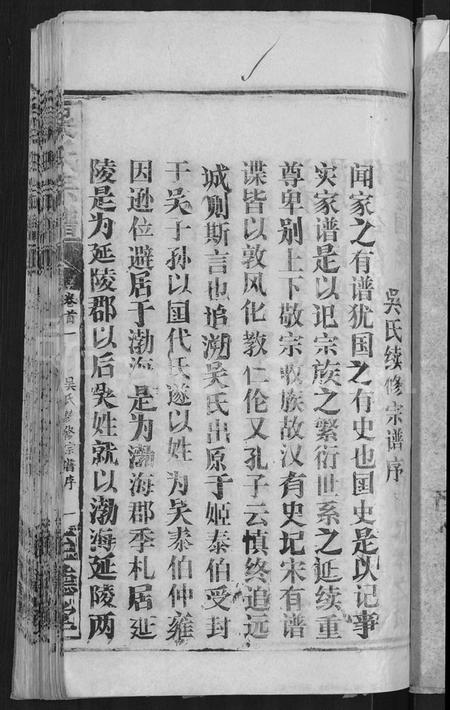 吳氏续修宗谱序
闻家之有谱犹国之有史也国史是以记事
实家谱是以记宗族之繁衍世系之延续重
尊卑别上下敬宗收族故汉有史记宋有谱
谍皆以敦风化教仁伦又孔子云慎终追远
诚则斯言也追溯吴氏出原于姬泰伯受封
于吴子孙以国代氏遂以姓为吴泰伯仲雍
因逊位避居于渤海是为渤海郡季札居延
陵是为延陵郡以后吴姓就以渤海延陵两
卷首一
吴氏续修宗谱序
一